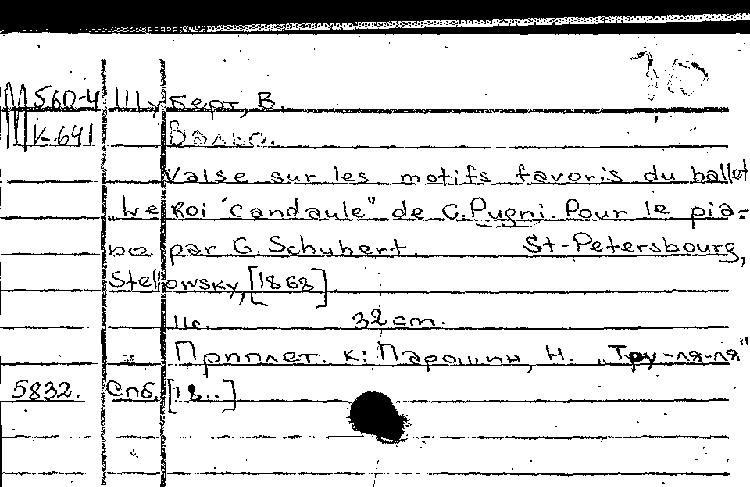 30
М 560-4 Шуберт, В.
К-691 Вальс.
Valse sur les motifs favoris du ballet
"Le Roi Candaule" de C. Pugni. Pour le pia-
no par G. Schubert. St-Petersbourg,
Stellowsky, [1868]
11с. 32 cm.
Приплет. к: Парошин, Н. „Тру-ля-ля"
5832. Спб. [18..]